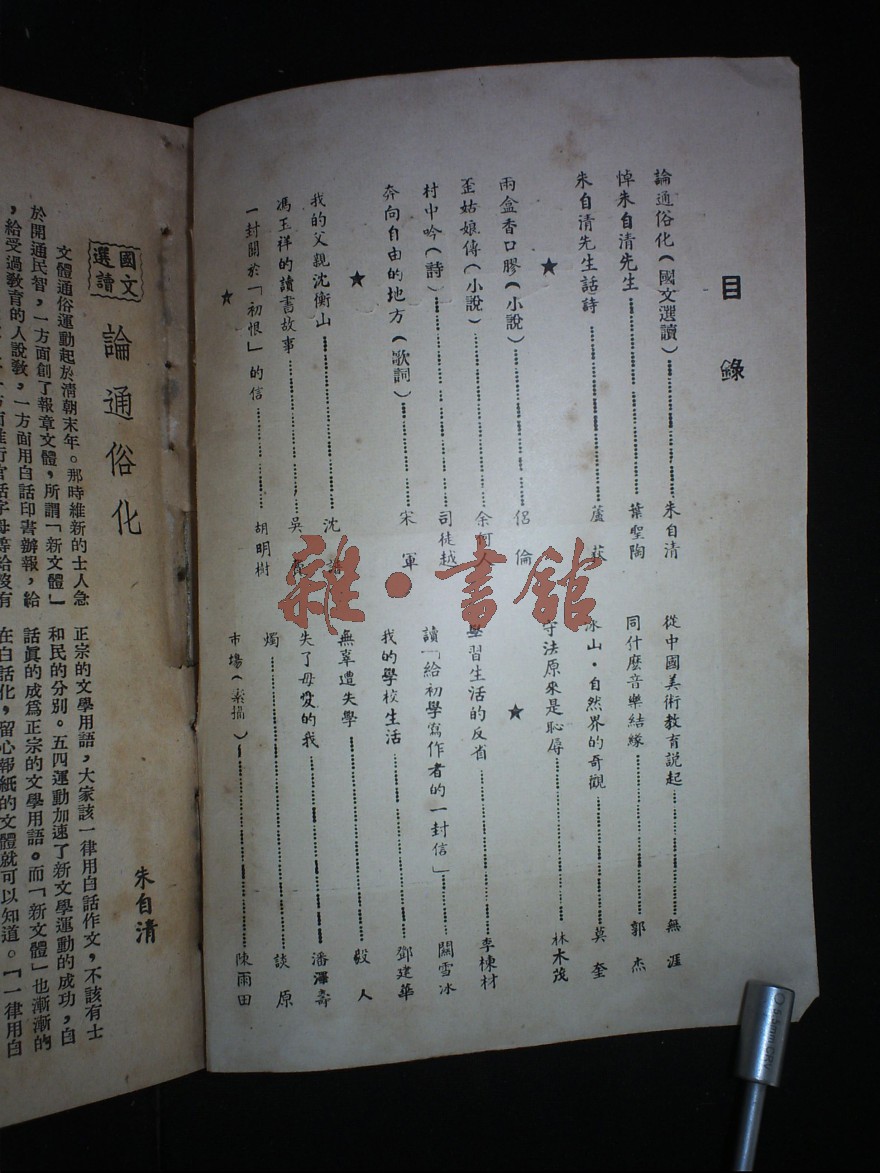 目錄
論通俗化(國文選讀)……朱自清
悼朱自清先生……葉聖陶
朱自清先生話詩……蘆荻
★
兩盒香口膠(小說)……侶倫
歪姑娘傳(小說)……余何人
村中吟(詩)……司徒越
奔向自由的地方(歌詞)……宋軍
★
我的父親沈衡山……沈
馮玉祥的讀書故事……吳
一封關於「初恨」的信……胡明樹
★
從中國美術教育說起……無涯
同什麽音樂結緣……郭杰
冰山·自然界的奇觀……莫奎
守法原來是恥辱……林木茂
★
學習生活的反省……李棟材
讀「給初學寫作者的一封信」……關雪冰
我的學校生活……鄧建華
無辜遭失學……毅人
失了母愛的我……潘澤壽
燭……談原
市場(素描)……陳雨田
雜·書舘
國文選讀
論通俗化
朱自清
文體通俗運動起於清朝末年。那時維新的士人急
於開通民智,一方面創了報章文體,所謂「新文體」
,給受過教育的人說教,一方面用白話印書辦報,給
正宗的文學用語,大家該一律用白話作文,不該有士
和民的分別。五四運動加速了新文學運動的成功,白
話眞的成爲正宗的文學用語。而「新文體」也漸漸的
在白話化,留心報紙的文體就可以知道。「一律用白
0.5mm